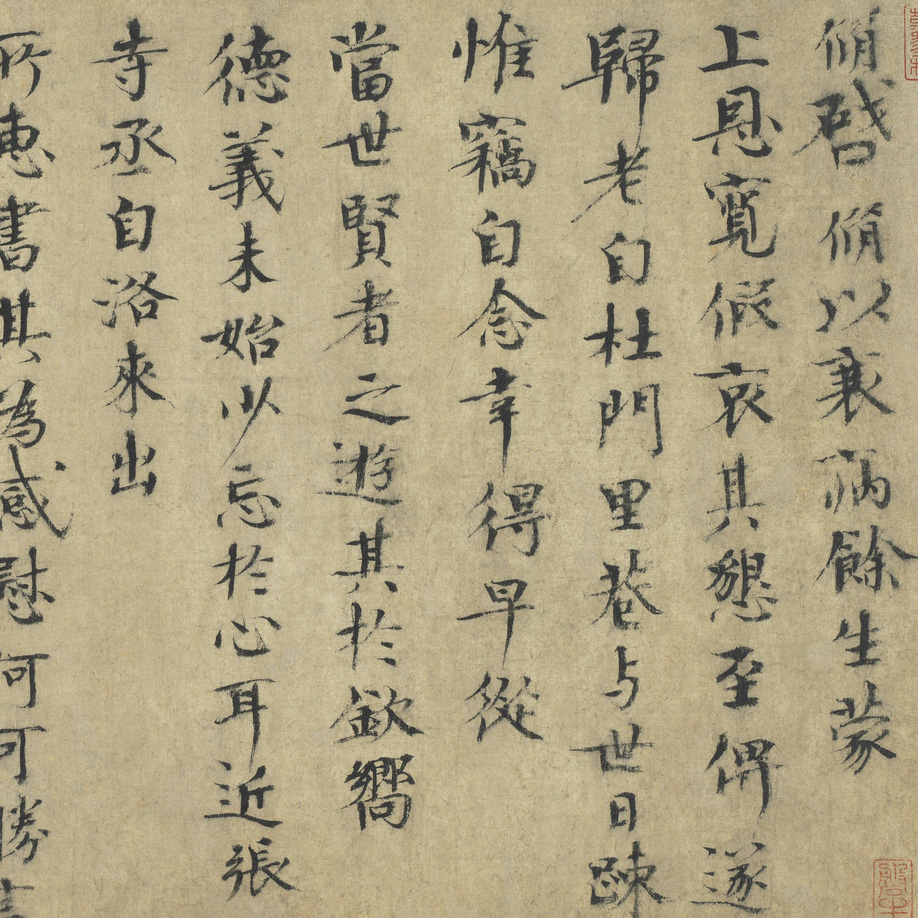 脩啓脩以衰病餘生蒙
上恩寬假哀其懇至俾遂
歸老自杜門里巷与世日踈
惟竊自念幸得早從
當世賢者之遊其於欽嚮
德義未始少忘於心耳近張
寺丞自洛來出
所惠書其為感慰何可勝